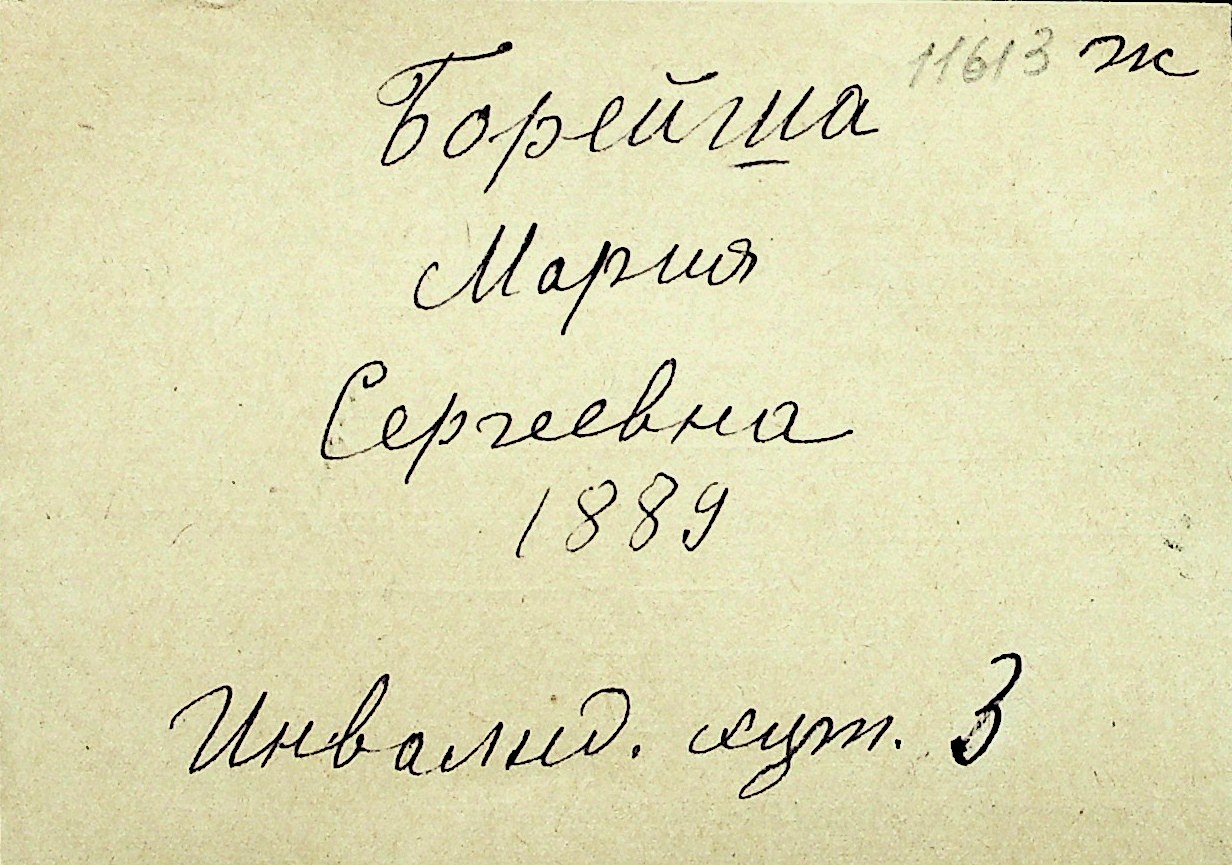 11613 ж
Борейша
Мария
Сергеевна
1889
Инвалид. хут. 3